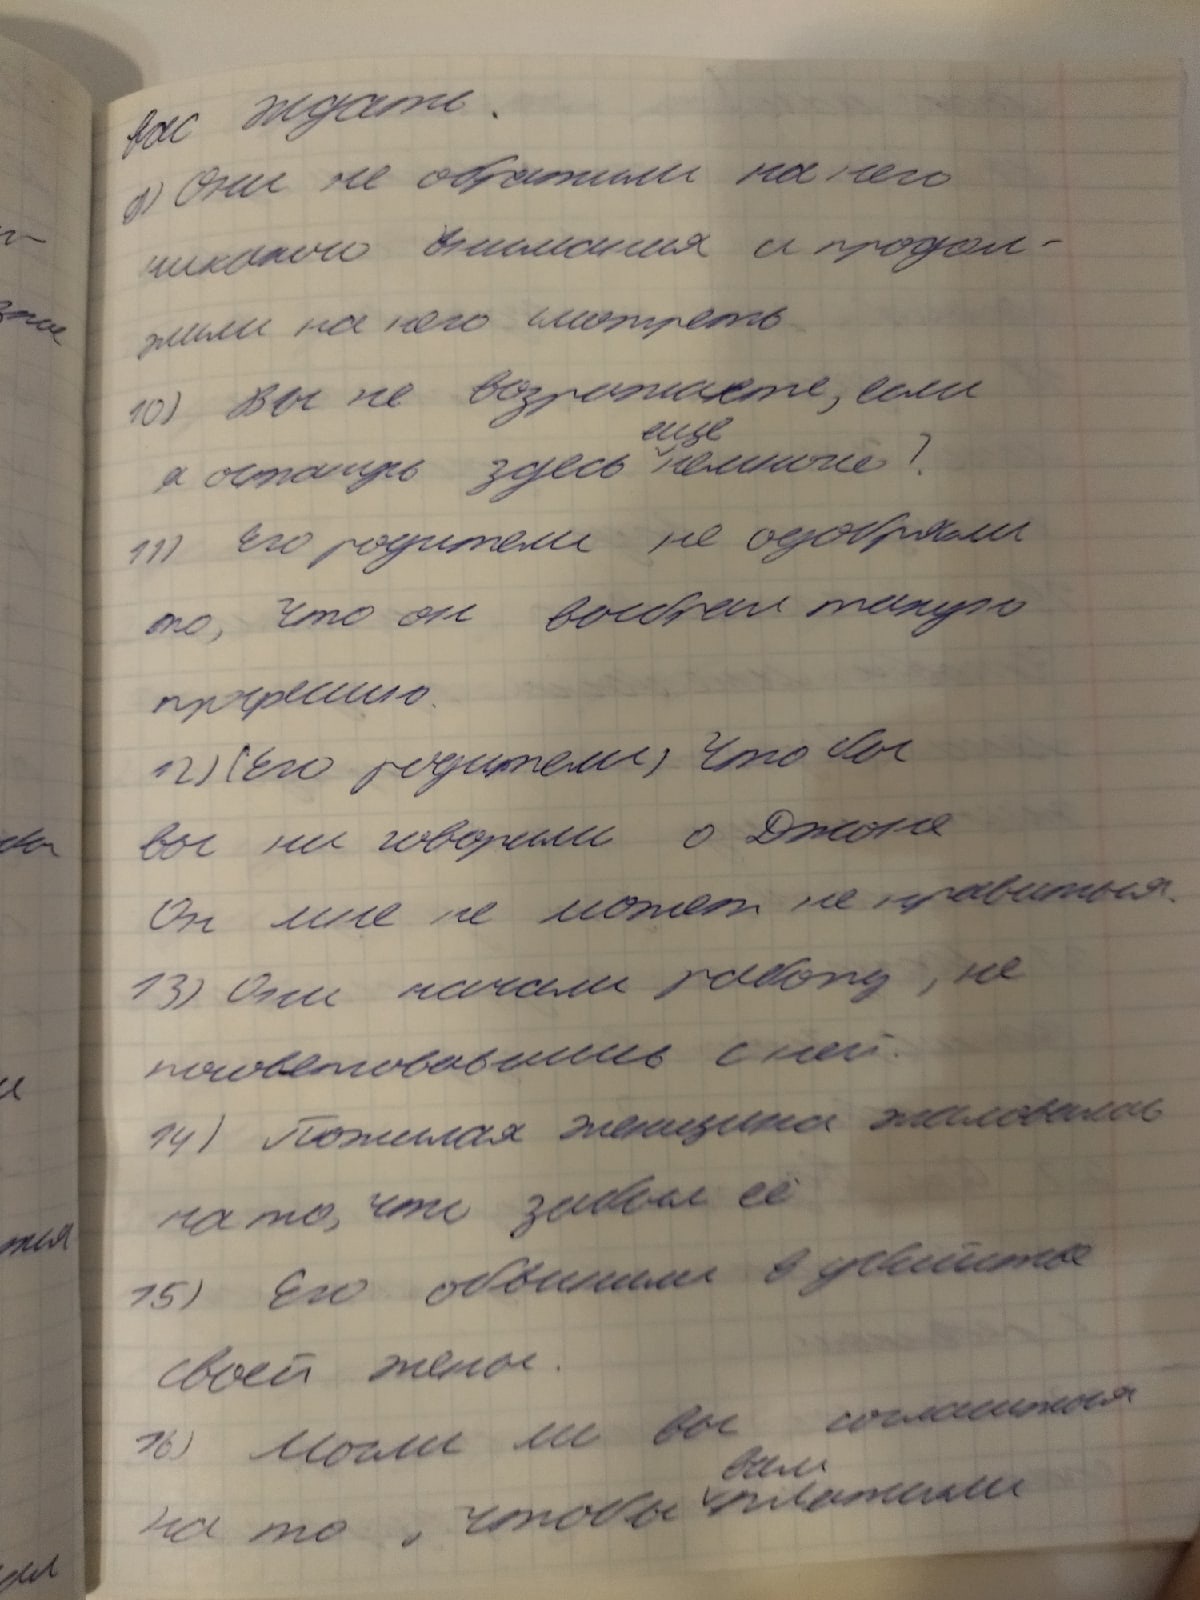 вас ждать.
9) Они не обратили на него
никакого внимания и продол-
жили на него смотреть
10) Вы не возражаете, если
я останусь здесь еще немного?
11) Его родители не одобряли
то, что он выбрал такую
профессию.
12) (Его родители) Что бы
вы ни говорили о Джоне
Он мне не может не нравиться.
13) Они начали работу, не
посоветовавшись с ней.
14) Пожилая женщина жаловалась
на то, что забыл её
15) Его обвинили в убийстве
своей жены.
16) Могли ли вы согласиться
на то, чтобы вам платили